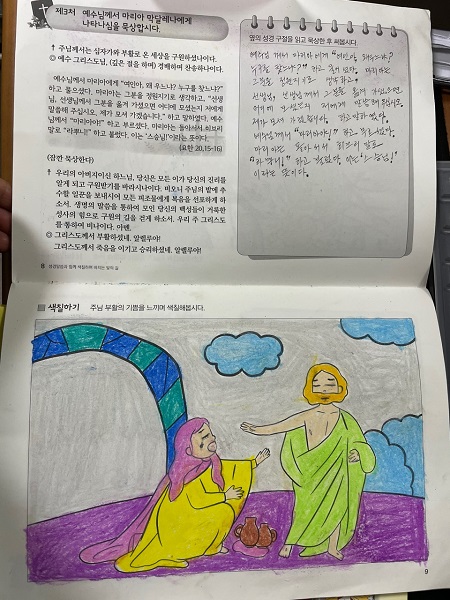 제3처
예수님께서 마리아 막달레나에게
나타나심을 묵상합시다.
† 주님께서는 십자가와 부활로 온 세상을 구원하셨나이다.
◎ 예수 그리스도님, (깊은 절을 하며) 경배하며 찬송하나이다.
예수님께서 마리아에게 "여인아, 왜 우느냐? 누구를 찾느냐?"
하고 물으셨다. 마리아는 그분을 정원지기로 생각하고, "선생
님, 선생님께서 그분을 옮겨 가셨으면 어디에 모셨는지 저에게
말씀해 주십시오. 제가 모셔 가겠습니다." 하고 말하였다. 예수
님께서 "마리아야!" 하고 부르셨다. 마리아는 돌아서서 히브리
말로 "라뿌니!" 하고 불렀다. 이는 '스승님!'이라는 뜻이다.
(요한 20,15-16)
(잠깐 묵상한다)
† 우리의 아버지이신 하느님, 당신은 모든 이가 당신의 진리를
알게 되고 구원받기를 바라시나이다. 비오니 주님의 밭에 추
수할 일꾼을 보내시어 모든 피조물에게 복음을 선포하게 하
소서. 생명의 말씀을 통하여 모인 당신의 백성들이 거룩한
성사의 힘으로 구원의 길을 걷게 하소서. 우리 주 그리스도
를 통하여 비나이다. 아멘.
◎ 그리스도께서 부활하셨네. 알렐루야!
그리스도께서 죽음을 이기고 승리하셨네. 알렐루야!
8
옆의 성경 구절을 읽고 묵상한 후 써봅시다.
예수님께서 마리아에게 "여인아, 왜 우느냐?
누구를 찾느냐?" 하고 물으셨다. 마리아는
그분을 정원지기로 생각하고, "
선생님, 선생님께서 그분을 옮겨 가셨으면
어디에 모셨는지 저에게 말씀해 주십시오.
제가 모셔 가겠습니다." 하고 말하였다.
예수님께서 "마리아야!" 하고 부르셨다.
마리아는 돌아서서 히브리 말로
"라뿌니!" 하고 불렀다. 이는 '스승님!'
이라는 뜻이다.
색칠하기 주님 부활의 기쁨을 느끼며 색칠해봅시다.
9